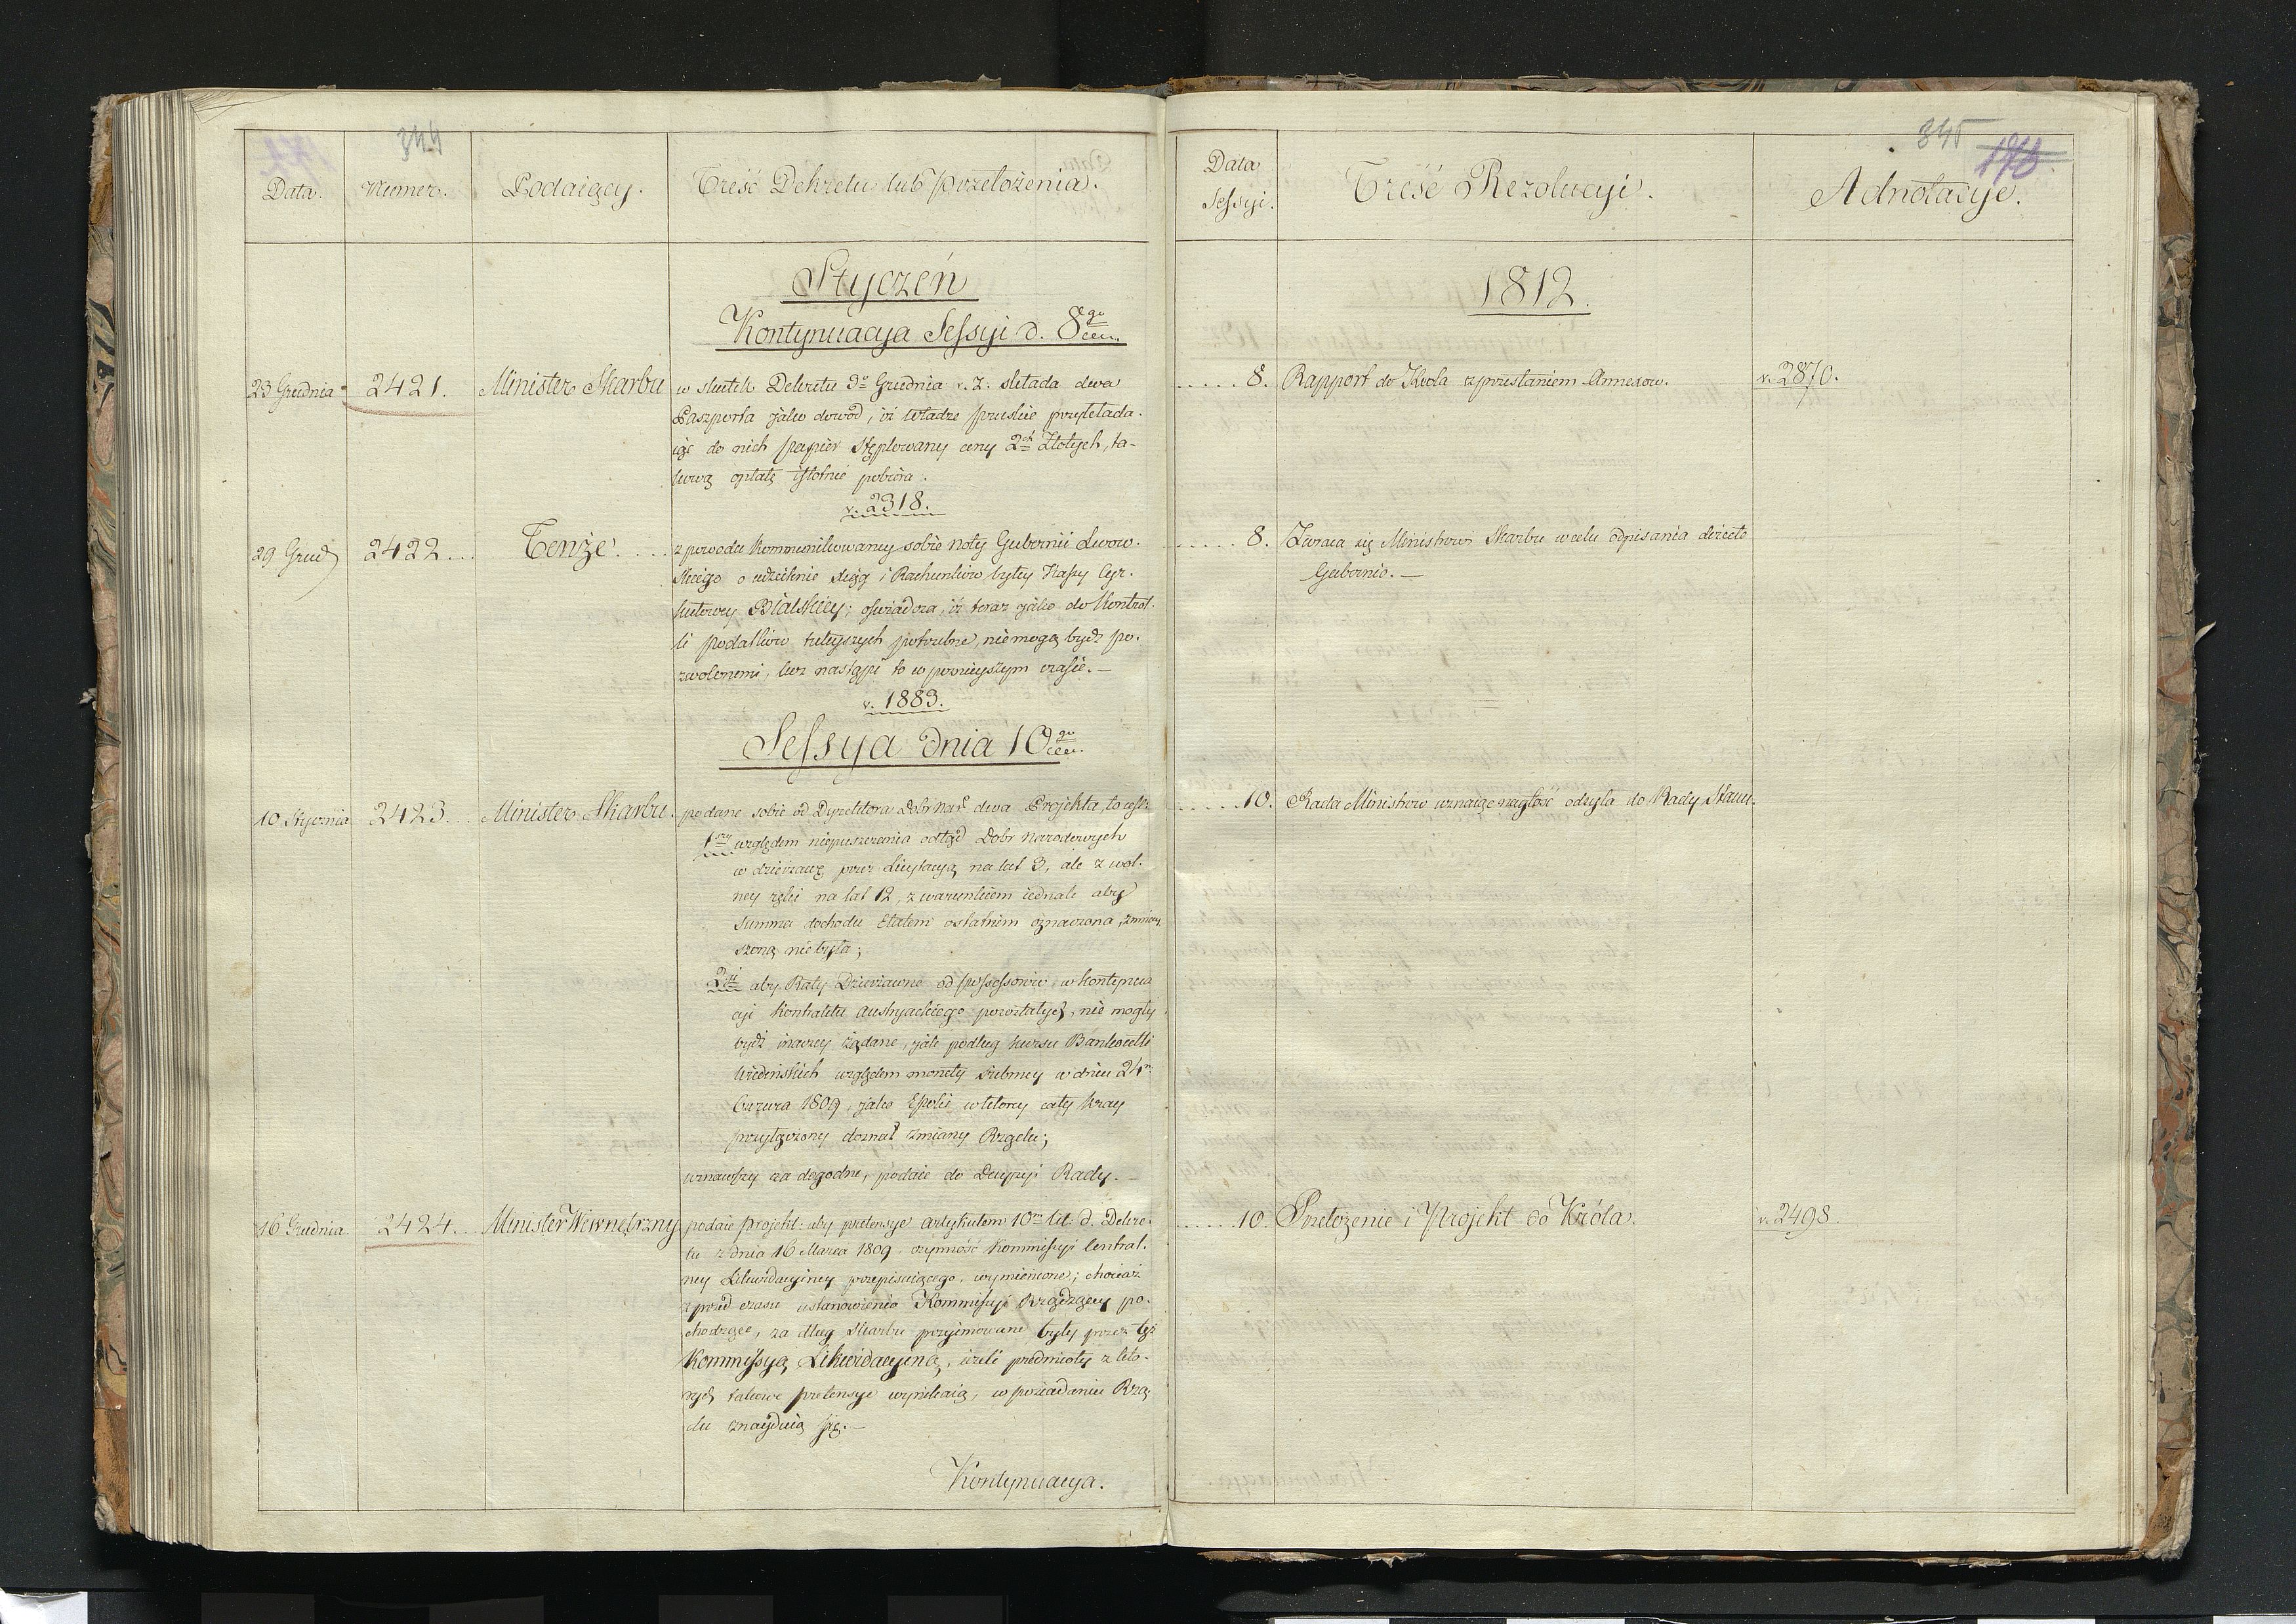 344
Data. Numer. Podaiący. Treść Dekretu lub przełożenia.
Styczeń
Kontynuacya Sessyi d. 8go
23 Grudnia 2421. Minister Skarbu w skutek Dekretu 3o Grudnia r. z. składa dwa
Paszporta jako dowód, iż władze pruskie przykłada-
iąc do nich papier stęplowany ceny 2ch Złotych, ta-
kową opłatę istotnie pobiera.
v. 2318.
29 Grud 2422... Tenże.... z powodu kommunikowaney sobie noty Gubernii Lwow-
skiego o udzielenie xiąg i Rachunków byłey Kassy Cyr-
kułowey Bialskiey; oświadcza, iż teraz jako do kontrol-
li podatków tuteyszych potrzebne, nie mogą bydź po-
zwolonemi, lecz nastąpi to w poźnieyszym czasie.—
v. 1883.
Sessya dnia 10go
10 Stycznia 2423... Minister Skarbu. podane sobie od Dyrektora Dobr Nar. dwa Projekta, to iest:
1szy względem niepuszczania odtąd Dobr Narodowych
w dzierżawę przez Licytacyą na lat 3, ale z wol-
ney ręki na lat 12, z warunkiem iednak aby
summa dochodu Etatem ostatnim oznaczona, zmniey
szoną nie była;
2gi aby Raty Dzierżawne od possessorów w kontynua
cyi kontraktu Austryackiego pozostałych, nie mogły
bydź inaczey żądane, jak podług kursu Bankocetli
Wiedeńskich względem monety srebrney w dniu 24m
Czerwca 1809, jako Epoki w którey cały kray
przyłączony doznał zmiany Rządu;
uznawszy za dogodne, podaie do Decyzyi Rady.—
16 Grudnia. 2424... Minister Wewnętrzny podaie projekt: aby pretensye artykułem 10m lit. d. Dekre-
tu z dnia 16 Marca 1809 czynność Kommissyi Central-
ney Likwidacyiney przepisuiącego, wymienione; chociaż
z przed czasu ustanowienia Kommissyi Rządzącey po-
chodzące, za dług Skarbu przyimowane były przez tęż
Kommissyą Likwidacyiną, ieżeli przedmioty z któ-
rych takowe pretensye wynikaią, w posiadaniu Rzą
du znayduią się.—
Kontynuacya.
345
Data Sessyi. Treść Rezolucyi. Adnotacye.
1812.
..... 8. Rapport do Króla z przesłaniem Annexow. v. 2870.
..... 8. Zwraca się Ministrowi Skarbu w celu odpisania directe
Gubernio.—
..... 10. Rada Ministrow uznaiąc nagłość odsyła do Rady Stanu.
..... 10. Przełożenie i Projekt do Króla. v. 2498.